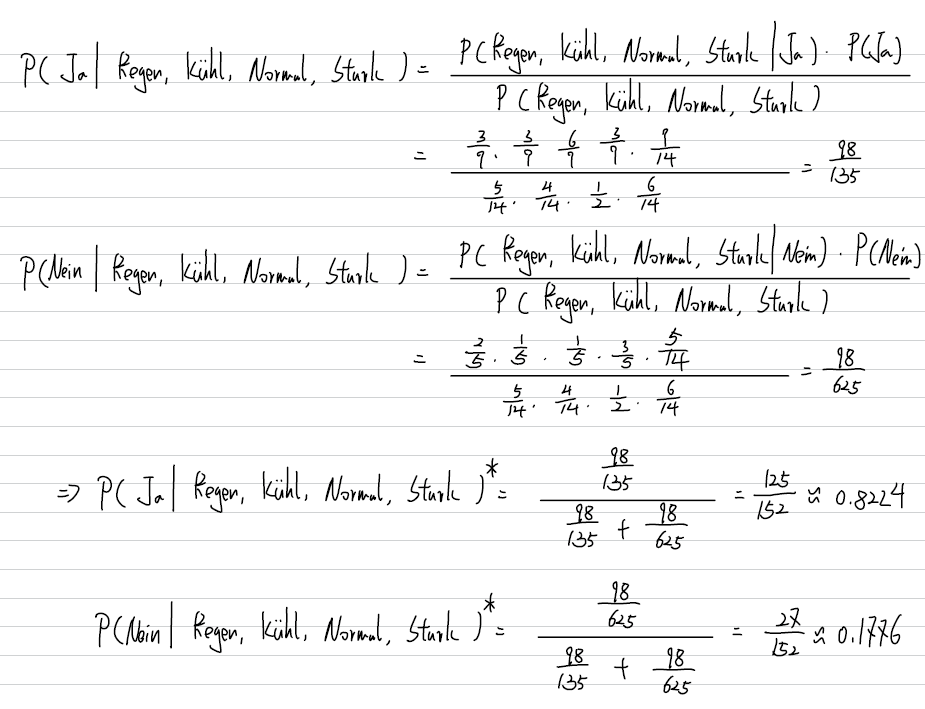 P( Ja | Regen, Kühl, Normal, Stark ) = P(Regen, Kühl, Normal, Stark | Ja) · P(Ja) / P(Regen, Kühl, Normal, Stark)
= (3/9 · 3/9 · 6/9 · 3/9 · 9/14) / (5/14 · 4/14 · 1/2 · 6/14) = 98/135
P(Nein | Regen, Kühl, Normal, Stark ) = P( Regen, Kühl, Normal, Stark | Nein) · P(Nein) / P( Regen, Kühl, Normal, Stark)
= (2/5 · 1/5 · 1/5 · 3/5 · 5/14) / (5/14 · 4/14 · 1/2 · 6/14) = 98/625
⇒ P( Ja | Regen, Kühl, Normal, Stark )* = (98/135) / (98/135 + 98/625) = 125/152 ≈ 0.8224
P(Nein | Regen, Kühl, Normal, Stark )* = (98/625) / (98/135 + 98/625) = 27/152 ≈ 0.1776